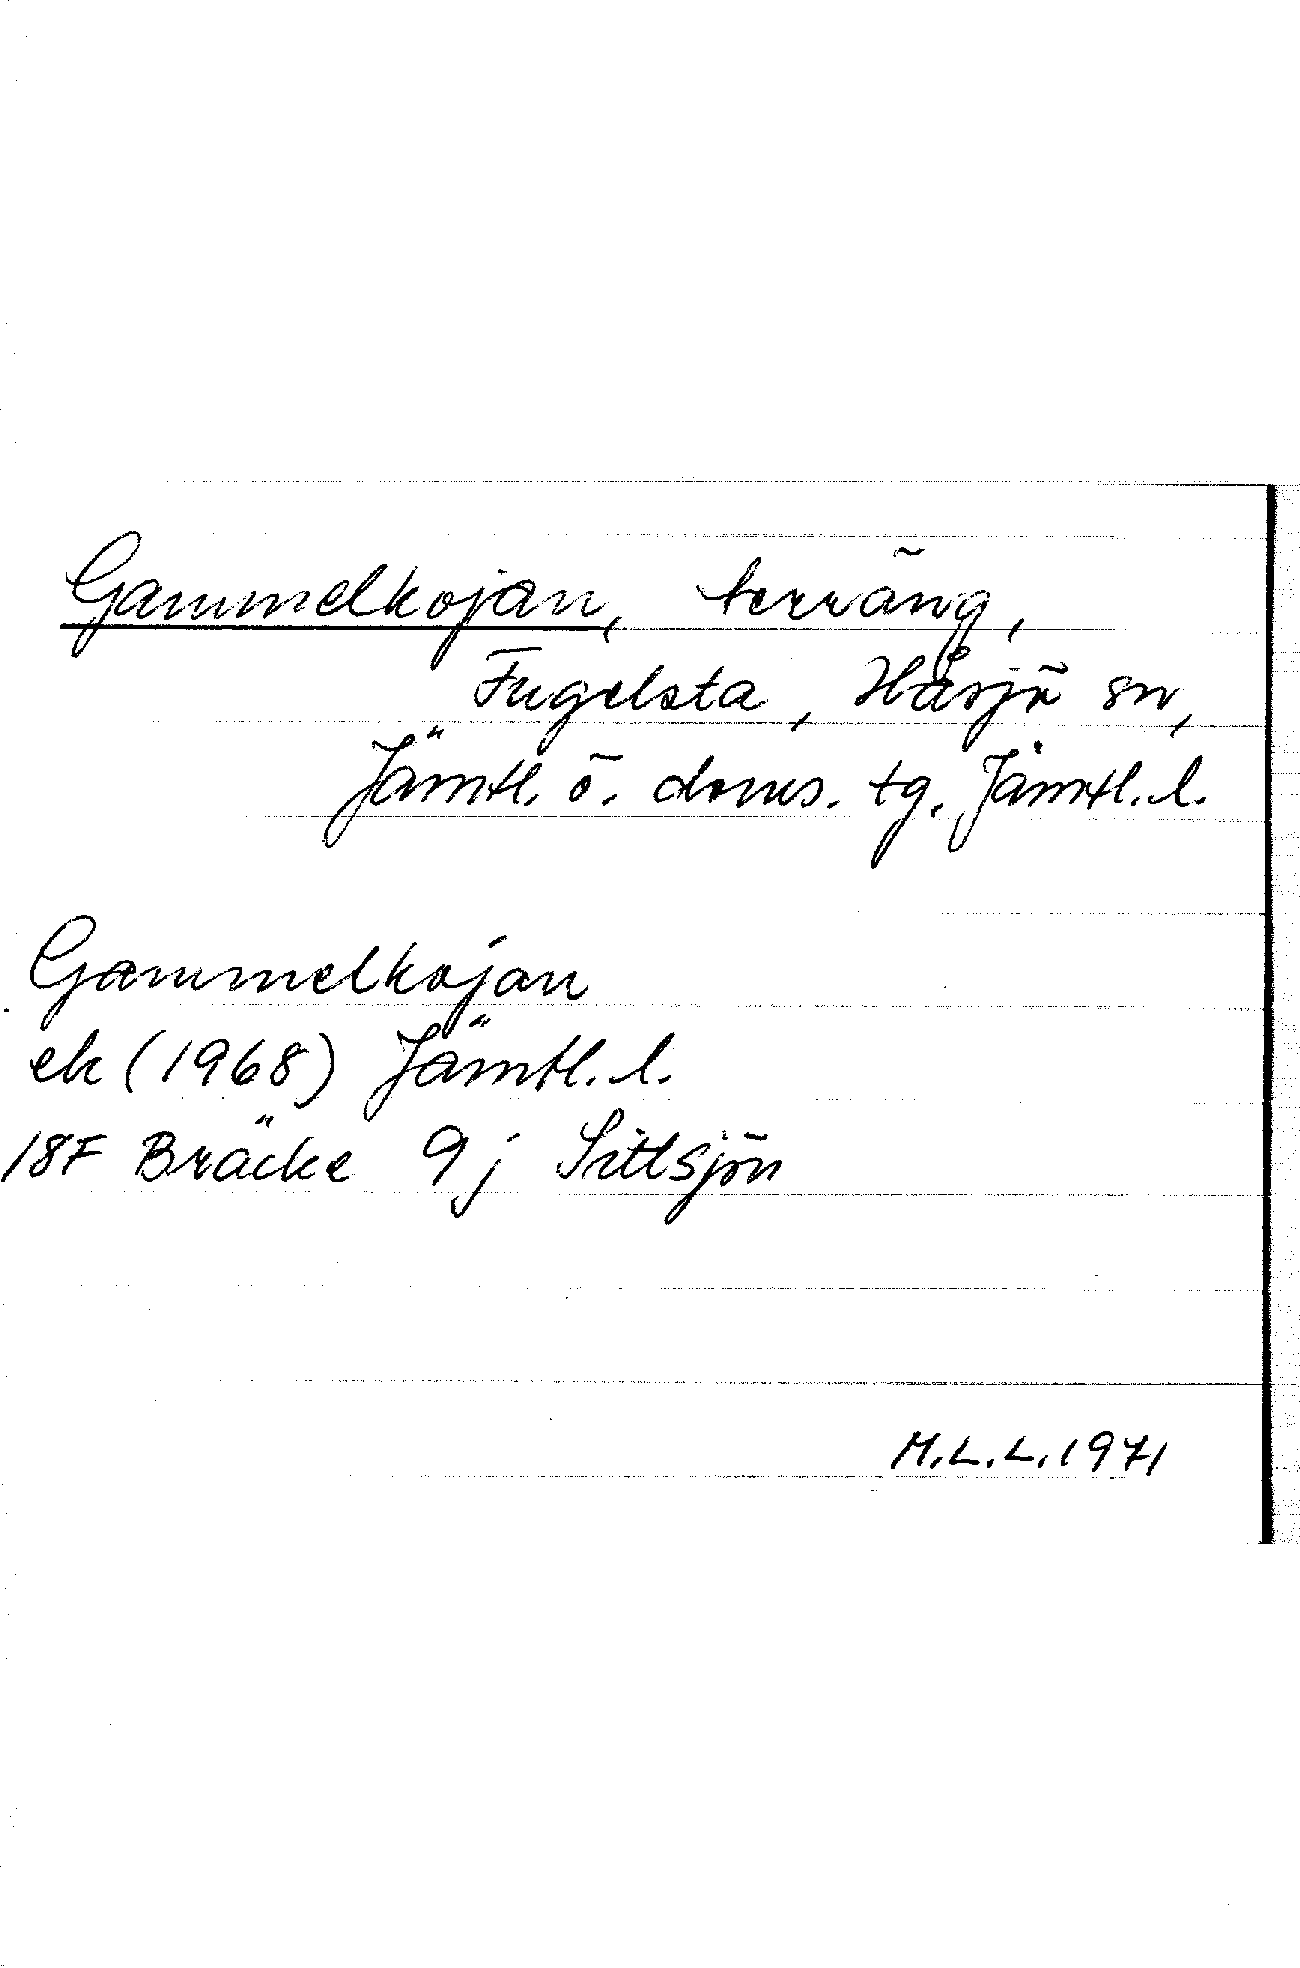 Gammelkojan, terräng,
Fugelsta, Håsjö sn,
Jämtl. ö. doms. tg, Jämtl. l.
Gammelkojan
ek (1968) Jämtl. l.
18F Bräcke 9j Sittsjön
M.L.L. 1971